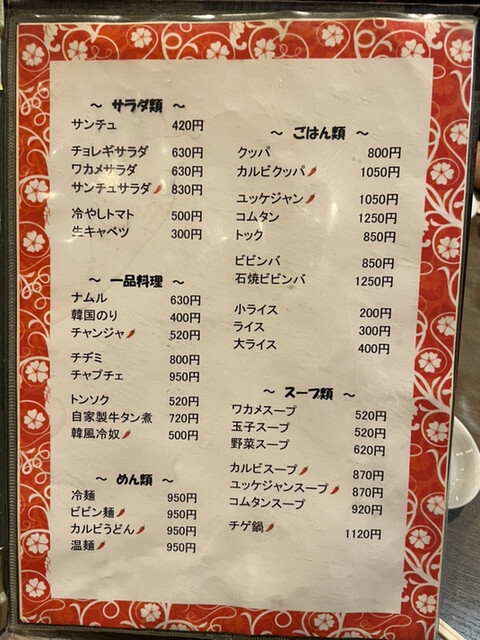 ～ サラダ類 ～
サンチュ 420円
チョレギサラダ 630円
ワカメサラダ 630円
サンチュサラダ 830円
冷やしトマト 500円
生キャベツ 300円
～ 一品料理 ～
ナムル 630円
韓国のり 400円
チャンジャ 520円
チヂミ 800円
チャプチェ 950円
トンソク 520円
自家製牛タン煮 720円
韓風冷奴 500円
～ めん類 ～
冷麺 950円
ビビン麺 950円
カルビうどん 950円
温麺 950円
～ ごはん類 ～
クッパ 800円
カルビクッパ 1050円
ユッケジャン 1050円
コムタン 1250円
トック 850円
ビビンバ 850円
石焼ビビンバ 1250円
小ライス 200円
ライス 300円
大ライス 400円
～ スープ類 ～
ワカメスープ 520円
玉子スープ 520円
野菜スープ 620円
カルビスープ 870円
ユッケジャンスープ 870円
コムタンスープ 920円
チゲ鍋 1120円